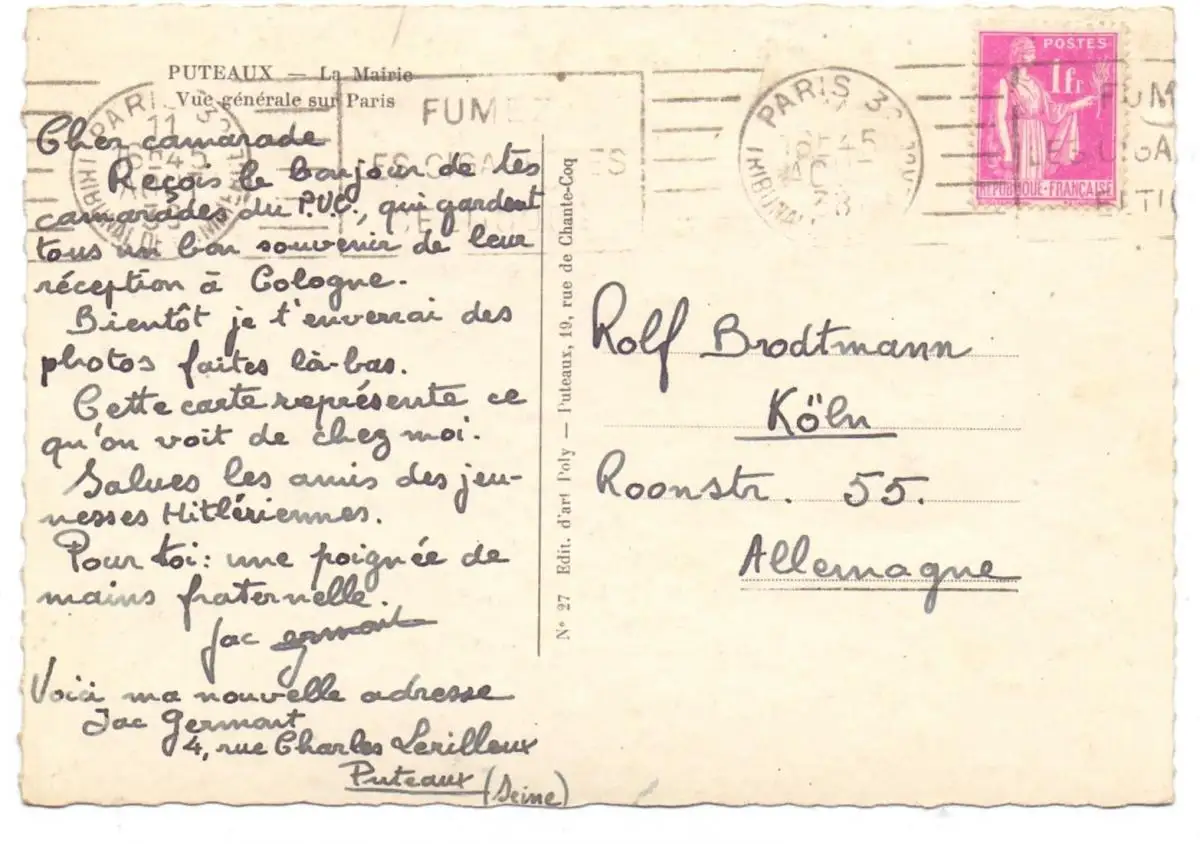 PUTEAUX — La Mairie
Vue générale sur Paris
Cher camarade
Reçois le bonjour de tes
camarades du P.U.C., qui gardent
tous un bon souvenir de leur
réception à Cologne.
Bientôt je t'enverrai des
photos faites là-bas.
Cette carte représente ce
qu'on voit de chez moi.
Salues les amis des jeu-
nesses Hitlériennes.
Pour toi: une poignée de
mains fraternelle.
Jac Germont
Voici ma nouvelle adresse
Jac Germont
4, rue Charles Lorilleux
Puteaux (Seine)
N° 27 Edit. d'art Poly — Puteaux, 19, rue de Chante-Coq
PARIS
FUMEZ
LES CIGA
PARIS
TRIBUNAL
POSTES
1fr
REPUBLIQUE-FRANÇAISE
FUM
LES CIGA
Rolf Brodtmann
Köln
Roonstr. 55.
Allemagne